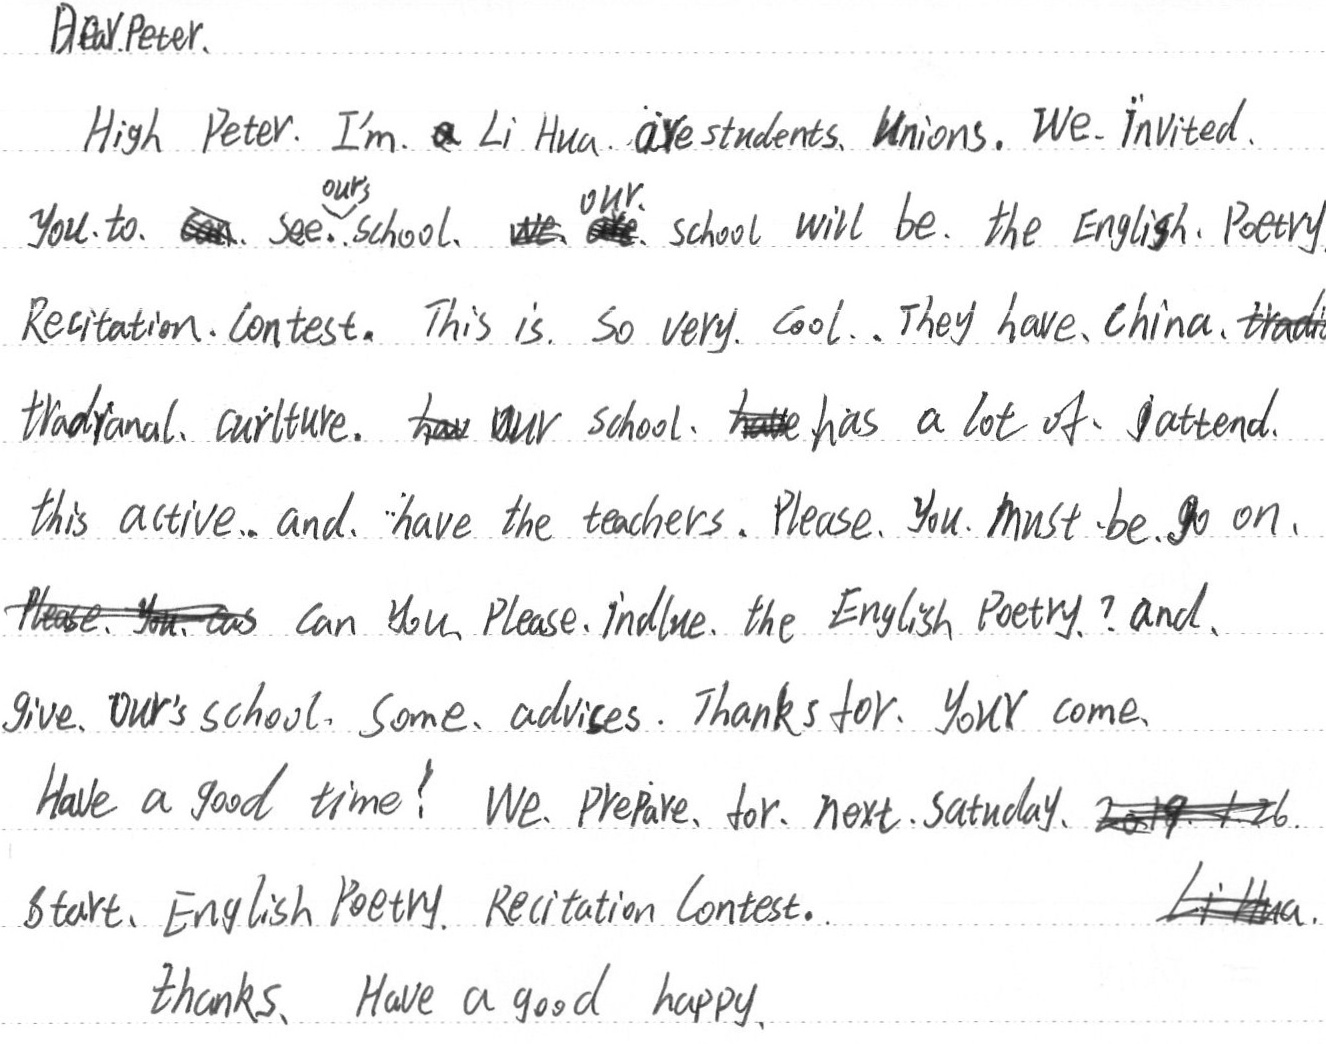 Dear Peter.
High Peter. I'm Li Hua are students Unions. We invited.
You to. see ours school. our. school will be. the English. Poetry
Recitation. Contest. This is. so very. cool.. They have. China.
tradianal. curlture. Our school. has a lot of. attend.
this active.. and. have the teachers. Please. You. must be go on.
can you Please. indlue. the English Poetry.? and.
give. our's school. some. advises. Thanks for. your come.
Have a good time! We. prepare. for. next. satuday.
start. English Poetry. Recitation Contest.
thanks. Have a good happy.